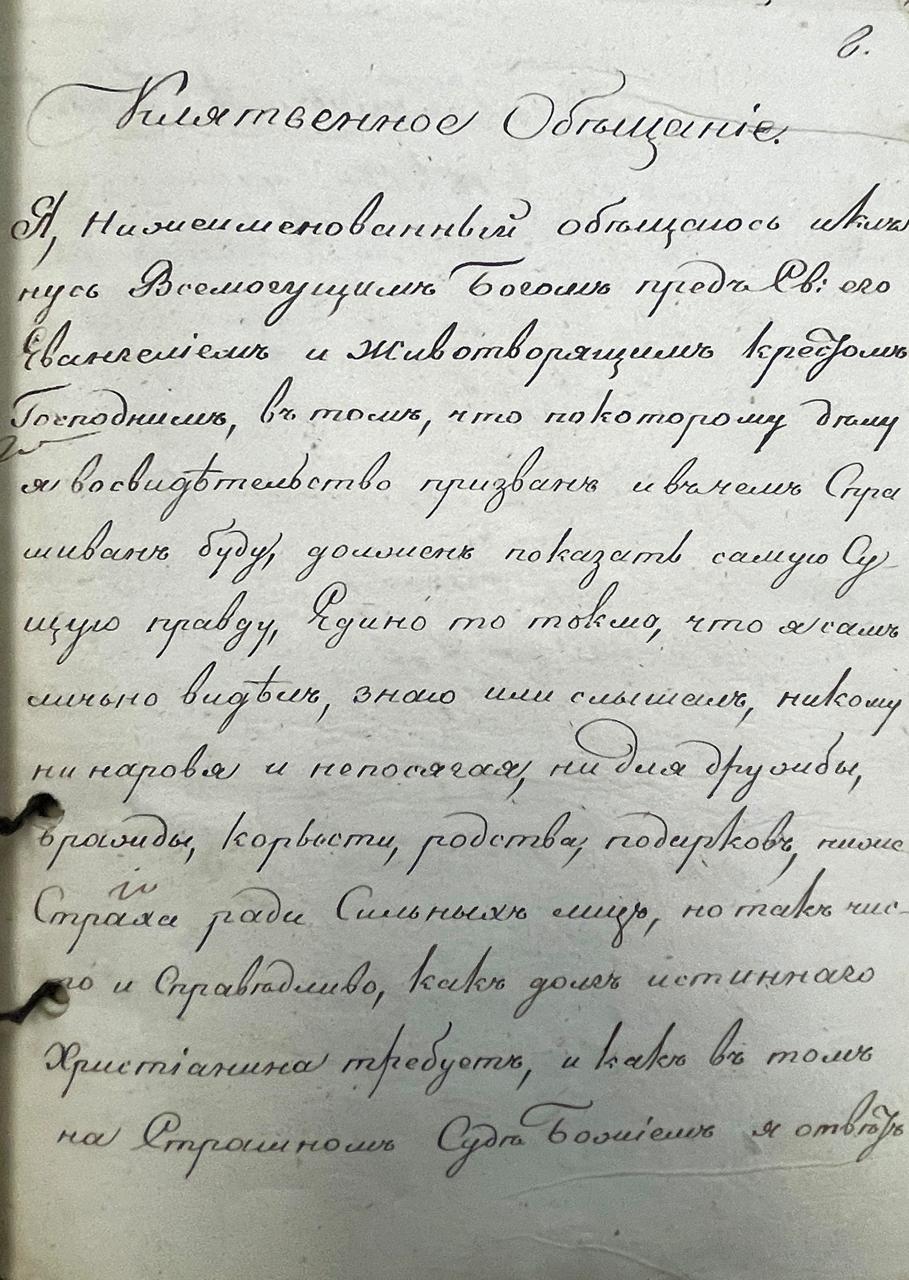 в.
Клятвенное Обѣщаніе.
Я, нижеименованный обѣщаюсь и кля
нусь Всемогущимъ Богомъ предъ Св: его
Евангеліемъ и Животворящимъ крестомъ
Господнимъ, въ томъ, что по которому дѣлу
я во свидѣтельство призванъ и въ чемъ Спра
шиванъ буду, долженъ показать самую Су-
щую правду, Едино то токмо, что я самъ
лично видѣлъ, знаю или слышалъ, никому
ни наровя и непосягая, ни для дружбы,
вражды, корысти, родства, подарковъ, ниже
Страха ради Сильныхъ лицъ, но такъ чис-
то и Справѣдливо, какъ долгъ истиннаго
Христіанина требуетъ, и какъ въ томъ
на Страшномъ Судѣ Божіемъ я отвѣтъ